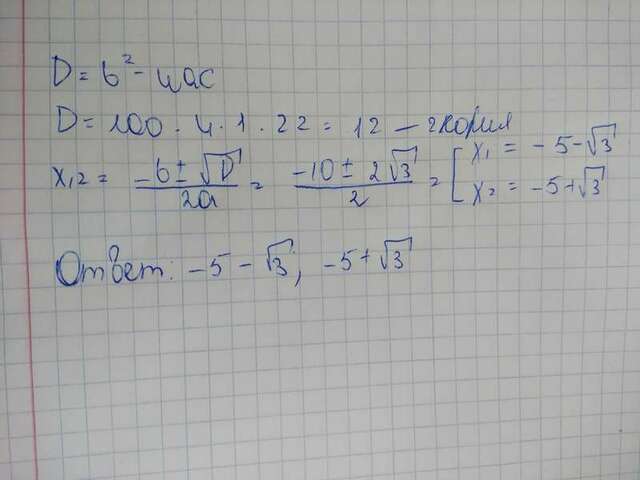 D = b² - 4ac
D = 100 · 4 · 1 · 22 = 12 — 2 корня
x₁,₂ = (-b ± √D)/2a = (-10 ± 2√3)/2 = [ x₁ = -5-√3
x₂ = -5+√3
Ответ: -5 - √3; -5+√3